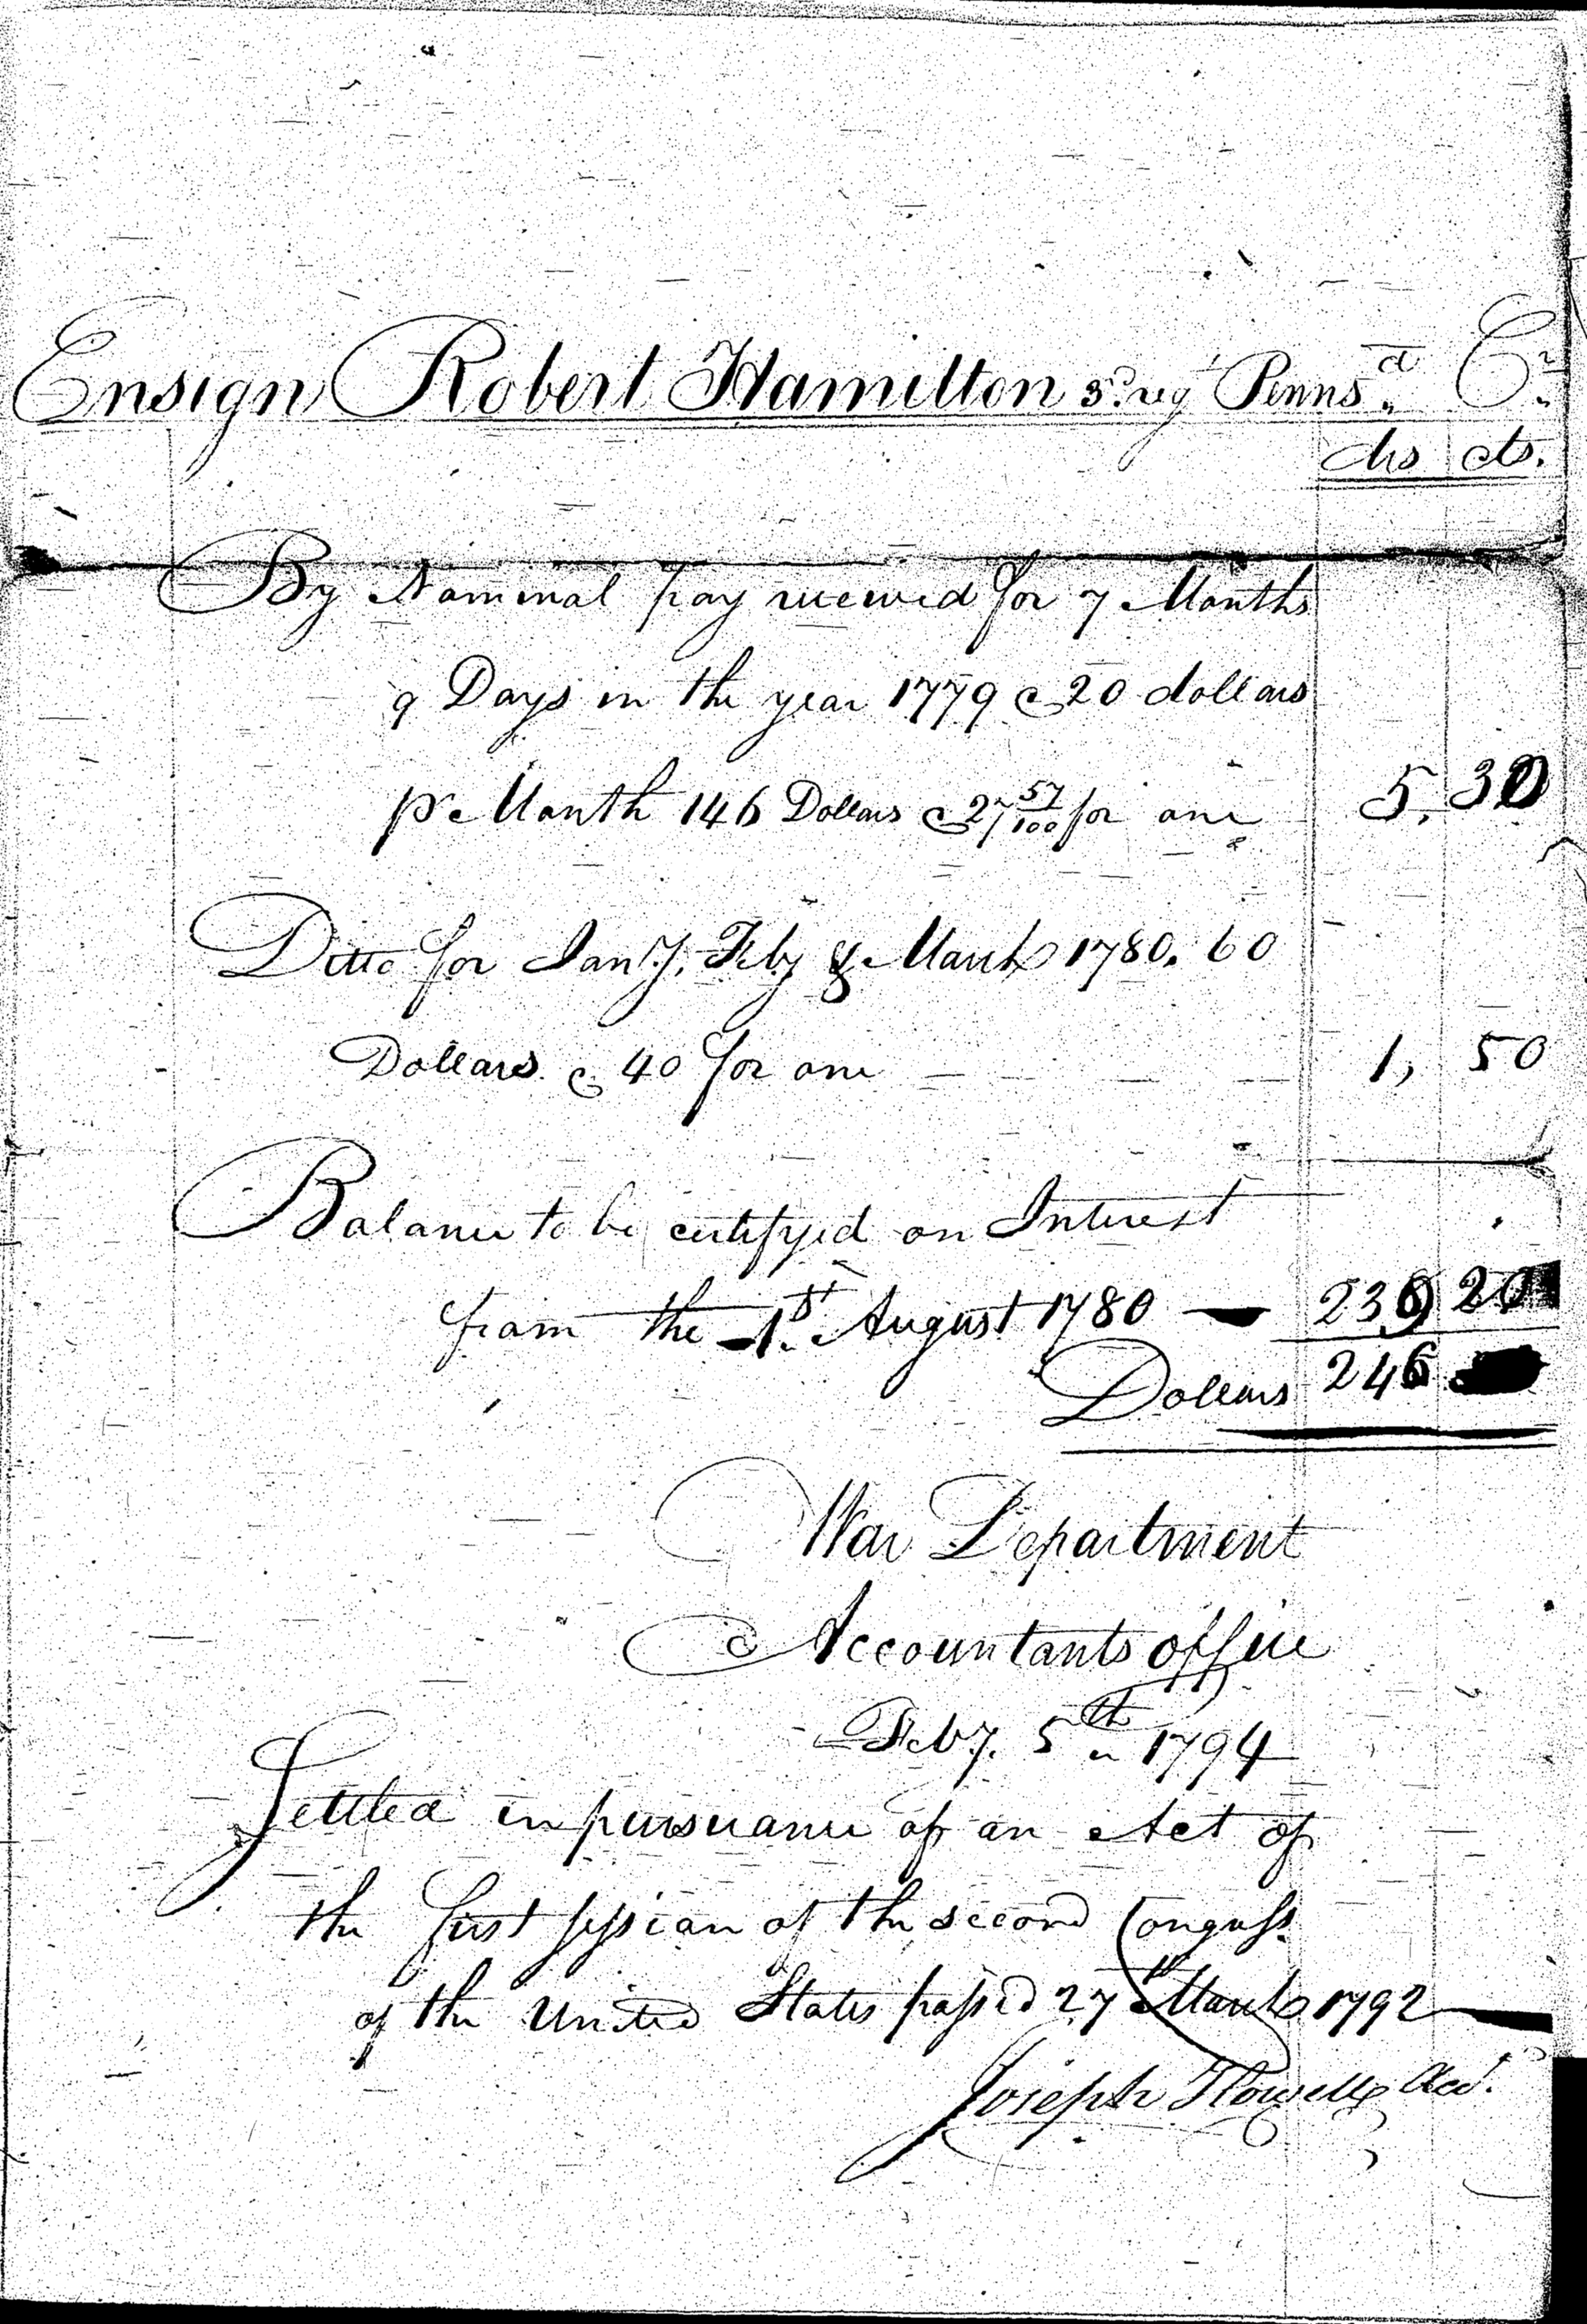 Ensign Robert Hamilton 3d. regt Pennsa. Cr.
drs cts.
By Nominal pay received for 7 Months
9 Days in the year 1779 @ 20 dollars
pr Month 146 Dollars @ 27 57/100 for one 5. 30
Ditto for Jany. Feby & March 1780. 60
Dollars @ 40 for one 1, 50
Balance to be certifyed on Interest
from the 1st. August 1780 239 20
Dollars 246
War Department
Accountants office
Feby. 5th 1794
Settled in pursuance of an Act of
the first session of the second Congress.
of the United States passed 27th March 1792
Joseph Howell Acct.